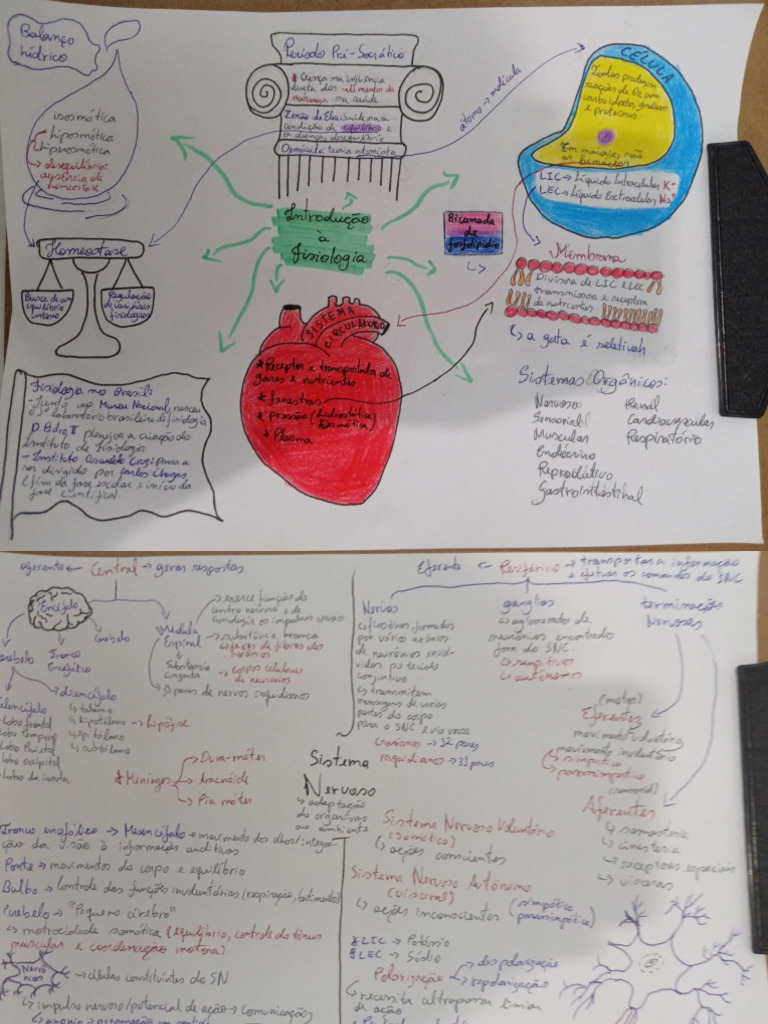 Balanço
hídrico
isosmótica
hiposmótica
hiperosmótica
→ desequilíbrio:
ausência de
homeostase
Homeostase
Busca de um
equilíbrio
interno
Regulação
de variáveis
fisiológicas
Período Pré-Socrático
* Crença na influência
direta dos elementos da
natureza na saúde
condição de equilíbrio e
a doença, desequilíbrio
teoria atomista
átomo → molécula
Introdução
à
Fisiologia
CÉLULA
Todas produzem
reação de O2 com
carboidratos, gordura
e proteínas
Em maioria, não
as hemácias
LIC → Líquido Intracelular K+
LEC → Líquido Extracelular Na+
Bicamada
de
fosfolipídio
Membrana
Divisora de LIC e LEC
transmissora e receptora
de nutrientes
↳ a gata é seletivah
SISTEMA
CIRCULATÓRIO
* Receptor e transportador de
gases e nutrientes
* fenestras
* pressão (hidrostática /
Osmótica)
* Plasma
Fisiologia no Brasil:
- Junto ao Museu Nacional, nasceu
o 1º laboratório brasileiro de fisiologia
D Pedro II planeja a criação do
Instituto de Fisiologia.
- Instituto Oswaldo Cruz passa a
ser dirigido por Carlos Chagas
(fim da fase escolar e início da
fase científica)
Sistemas Orgânicos:
Nervoso Renal
Sensorial Cardiovascular
Muscular Respiratório
Endócrino
Reprodutivo
Gastrointestinal
aferente ← Central → gerar respostas
Encéfalo
cerebelo
Tronco
Encefálico
cerebelo
Medula
Espinal
↳ Substância
cinzenta
→ exerce funções de
centro nervoso e de
conduzir os impulsos nervosos
→ substância branca
↳ feixes de fibras dos
neurônios
→ corpos celulares
de neurônios
pares de nervos raquidianos
telencéfalo
Lobo frontal
Lobo temporal
Lobo Parietal
Lobo occipital
Lobo da ínsula
diencéfalo
↳ tálamo
↳ hipotálamo → hipófise
↳ epitálamo
↳ subtálamo
* Meninges
Dura-máter
Aracnóide
Pia máter
Sistema
Nervoso
↳ adaptação
do organismo
ao ambiente
Eferente ← Periférico → transportar a informação
e efetuar os comandos do SNC
Nervos
↳ filetinhos formados
por vários axônios
de neurônios envol-
vidos por tecido
conjuntivo
↳ transmitem
mensagens de várias
partes do corpo
para o SNC e vice versa
cranianos → 12 pares
raquidianos → 31 pares
ganglios
↳ aglomerados de
neurônios encontrados
fora do SNC.
↳ sensitivos
↳ autônomos
terminações
Nervosas
(motor)
Eferentes
movimento voluntário
movimento involuntário
↳ simpático
↳ parassimpático
(sensorial)
Aferentes
↳ somestesia
↳ cinestesia
↳ receptores especiais
↳ vísceras
Tronco encefálico → Mesencéfalo → movimento dos olhos/integra-
ção da visão à informações auditivas
Ponte → movimentos do corpo e equilíbrio
Bulbo → controle das funções involuntárias (respiração, batimento)
Cerebelo → "Pequeno cérebro"
↳ motricidade somática (equilíbrio, controle do tônus
muscular e coordenação motora)
Neurônios
→ células constituintes do SN
↳ impulso nervoso/potencial de ação → comunicação
Sistema Nervoso Voluntário
(somático)
↳ ações conscientes
Sistema Nervoso Autônomo
(visceral)
↳ ações inconscientes (simpático
parasimpático)
* LIC → Potássio
* LEC → Sódio
Polarização
despolarização
repolarização
↳ necessita ultrapassar
de ação